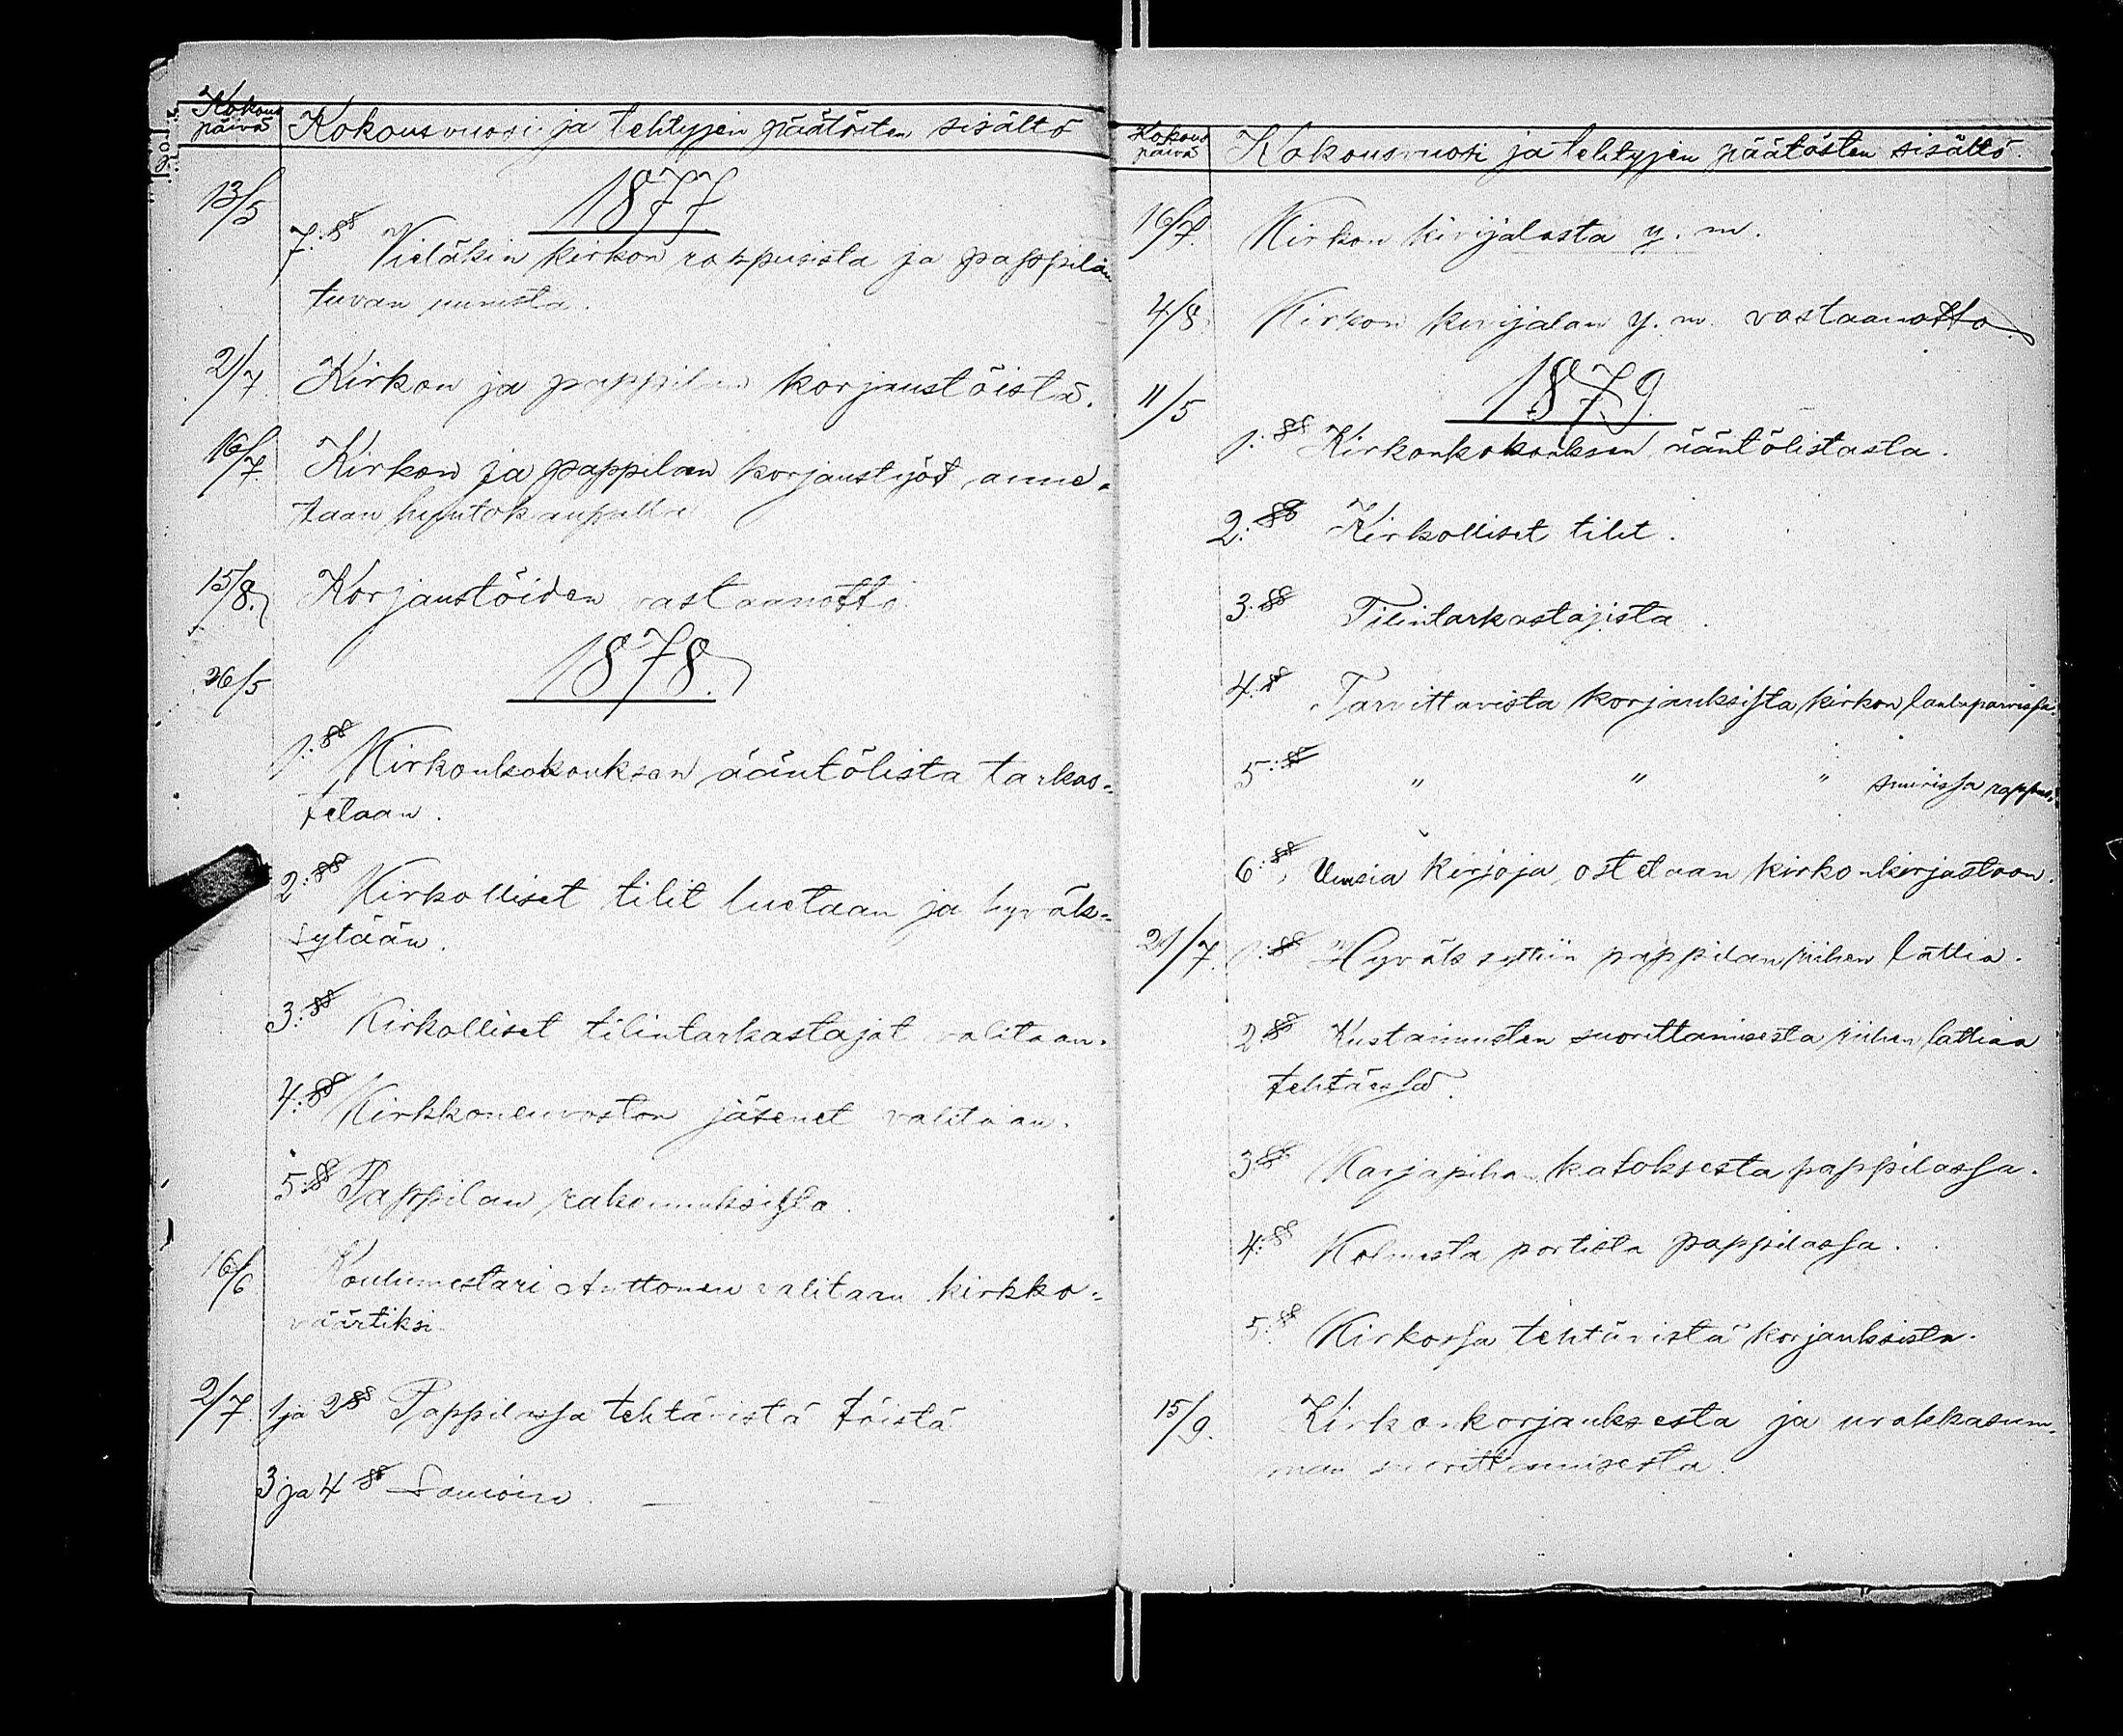 Kokous
päivä
Kokousvuosi ja tehtyjen päätösten sisältö
13/5
1877
7:§§ Vieläkin kirkon rappusista ja pappilan
tuvan uunista.
2/7
Kirkon ja pappilan korjaustöistä.
16/7.
Kirkon ja pappilan korjaustyöt anne-
taan huutokaupalla
15/8.
Korjaustöiden vastaanotto.
26/5
1878.
1:§§ Kirkonkokouksen ääntölista tarkas=
tetaan.
2:§§ Kirkolliset tilit luetaan ja hyväk=
sytään.
3:§§ Kirkolliset tilintarkastajat valitaan.
4:§§ Kirkkoneuvoston jäsenet valitaan.
5:§§ Pappilan rakennuksista.
16/6
Koulumestari Anttonen valitaan kirkko=
väärtiksi.
2/7.
1 ja 2 §§ Pappilassa tehtävistä töistä
3 ja 4 §§ Samoin.
Kokous
päivä
Kokousvuosi ja tehtyjen päätösten sisältö.
16/7.
Kirkon kivijalasta y. m.
4/8.
Kirkon kivijalan y. m. vastaanotto.
11/5
1879.
1:§§ Kirkonkokouksen ääntölistasta.
2:§§ Kirkolliset tilit.
3:§§ Tilintarkastajista.
4:§§ Tarvittavista korjauksista kirkon lauluparvissa.
5:§§ " " " suurissa rappus.
6:§§, Uusia kirjoja ostetaan kirkonkirjastoon.
21/7.
1:§§ Hyväksyttiin pappilan riihen lattia.
2:§§ Kustannusten suorittamisesta riihen lattiaa
tehtäessä.
3:§§ Karjapihan katoksesta pappilassa.
4:§§ Kolmesta portista pappilassa.
5:§§ Kirkossa tehtävistä korjauksista.
15/9.
Kirkon korjauksesta ja urakkasum-
man suorittamisesta.